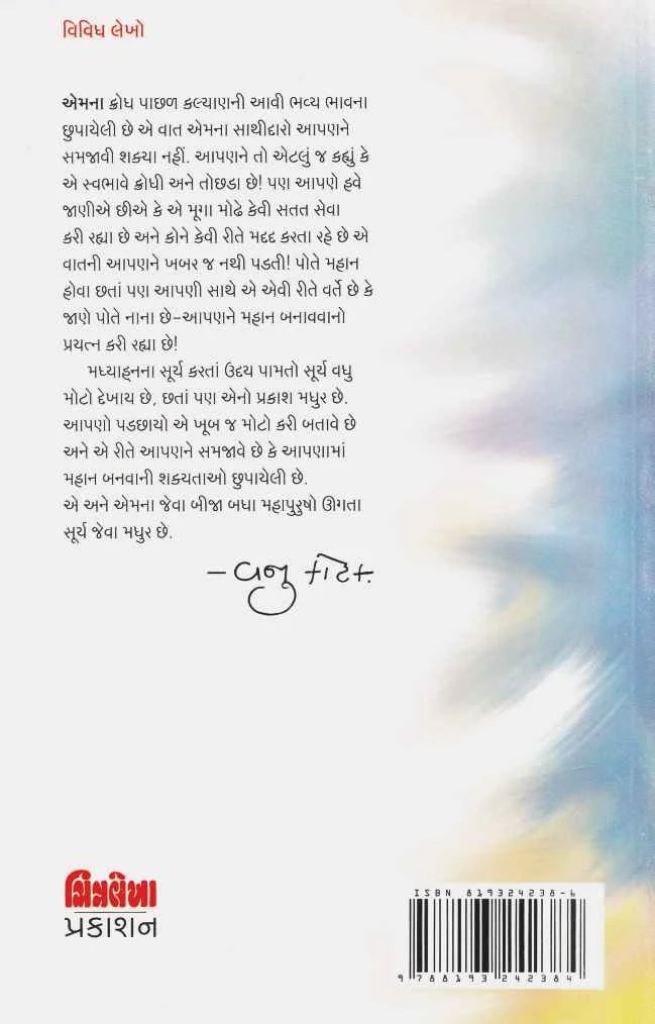 વિવિધ લેખો
એમના ક્રોધ પાછળ કલ્યાણની આવી ભવ્ય ભાવના
છુપાયેલી છે એ વાત એમના સાથીદારો આપણને
સમજાવી શક્યા નહીં. આપણને તો એટલું જ કહ્યું કે
એ સ્વભાવે ક્રોધી અને તોછડા છે! પણ આપણે હવે
જાણીએ છીએ કે એ મૂગા મોઢે કેવી સતત સેવા
કરી રહ્યા છે અને કોને કેવી રીતે મદદ કરતા રહે છે એ
વાતની આપણને ખબર જ નથી પડતી! પોતે મહાન
હોવા છતાં પણ આપણી સાથે એ એવી રીતે વર્તે છે કે
જાણે પોતે નાના છે-આપણને મહાન બનાવવાનો
પ્રયત્ન કરી રહ્યા છે!
મધ્યાહ્નના સૂર્ય કરતાં ઉદય પામતો સૂર્ય વધુ
મોટો દેખાય છે, છતાં પણ એનો પ્રકાશ મધુર છે.
આપણો પડછાયો એ ખૂબ જ મોટો કરી બતાવે છે
અને એ રીતે આપણને સમજાવે છે કે આપણામાં
મહાન બનવાની શક્યતાઓ છુપાયેલી છે.
એ અને એમના જેવા બીજા બધા મહાપુરુષો ઊગતા
સૂર્ય જેવા મધુર છે.
– વજુ કોટક
ચિત્રલેખા
પ્રકાશન
ISBN 819324238-6
9 788193 242384